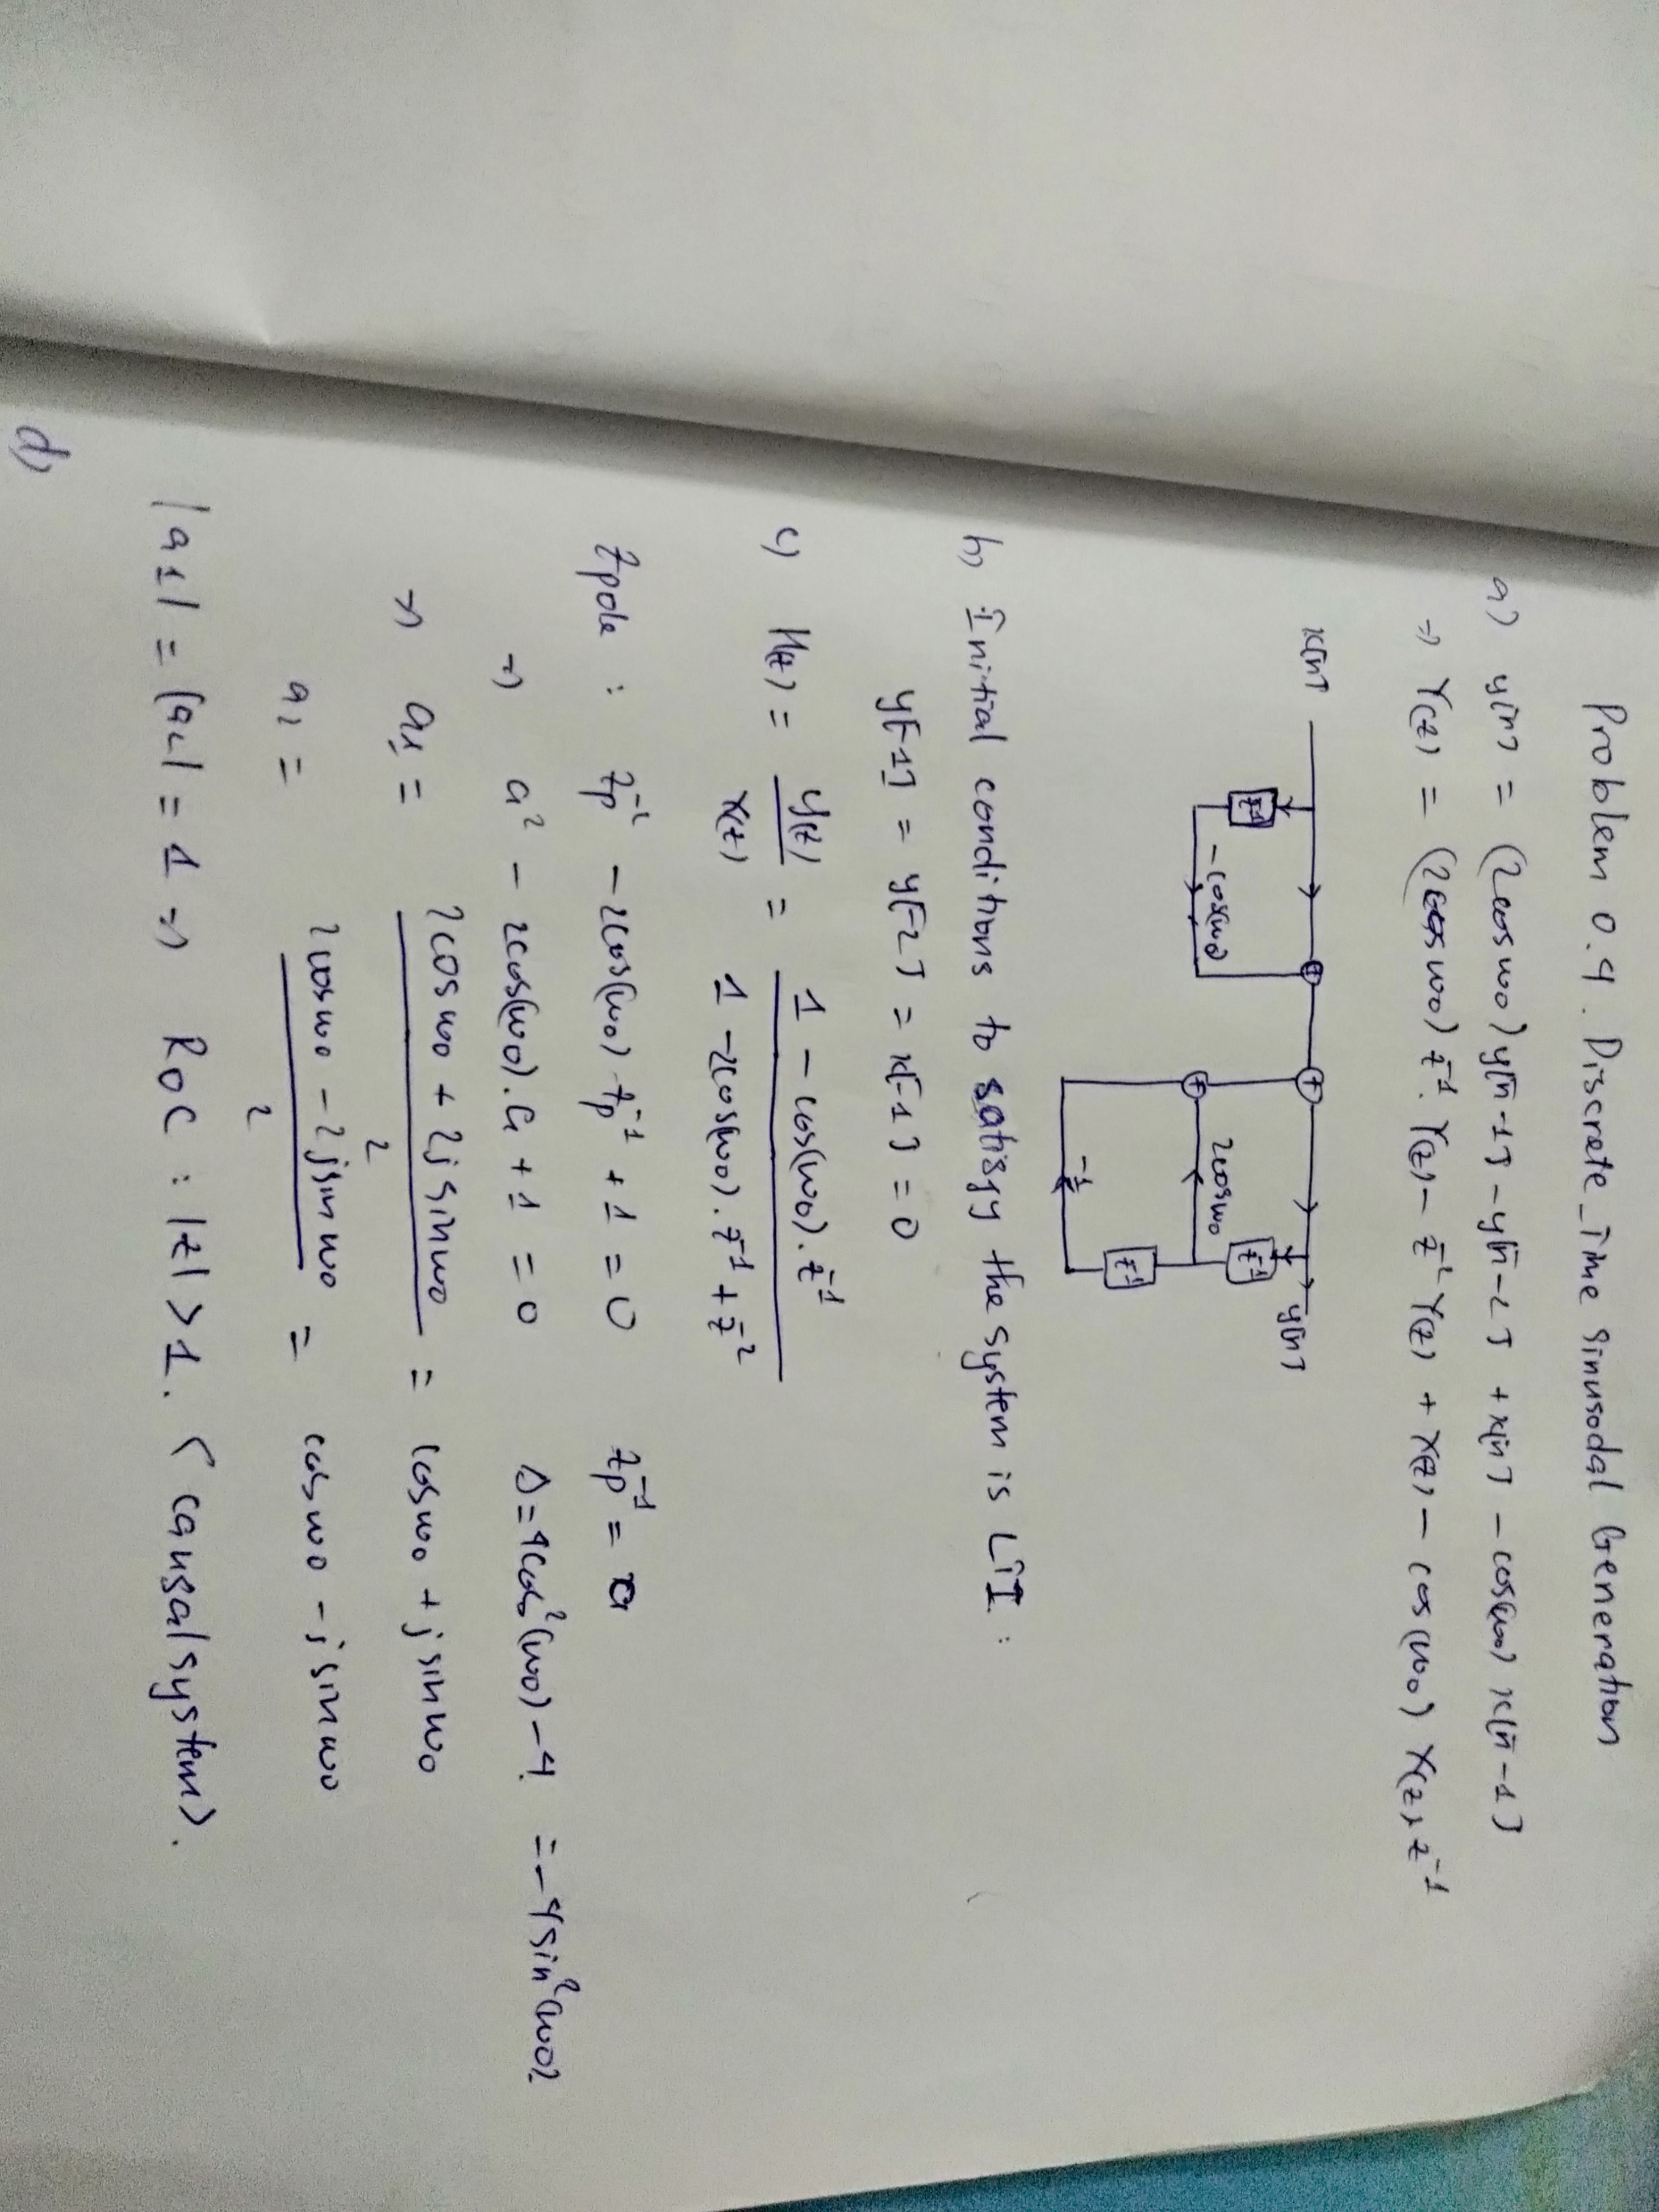 Problem 0.4. Discrete_Time sinusodal Generation
a) y[n] = (2cos w0) y[n-1] - y[n-2] + x[n] - cos(w0) x[n-1]
=> Y(z) = (2cos w0) z^-1. Y(z) - z^-2 Y(z) + X(z) - cos(w0) X(z) z^-1
x[n] + + y[n]
z^-1 -cos(w0) + 2cosw0 z^-1
-1 z^-1
b) Initial conditions to satisgy the system is LTI :
y[-1] = y[-2] = x[-1] = 0
c) H(z) = Y(z)/X(z) = (1 - cos(w0). z^-1)/(1 - 2cos(w0). z^-1 + z^-2)
zpole : zp^-2 - 2cos(w0) . zp^-1 + 1 = 0 zp^-1 = a
=> a^2 - 2cos(w0). a + 1 = 0 Δ = 4cos^2(w0) - 4 = -4sin^2(w0)
=> a1 = (2cos w0 + 2j sinw0)/2 = cosw0 + j sinw0
a2 = (2cosw0 - 2jsinw0)/2 = cosw0 - j sinw0
|a1| = |a2| = 1 => ROC : |z| > 1. (causal system).
d)